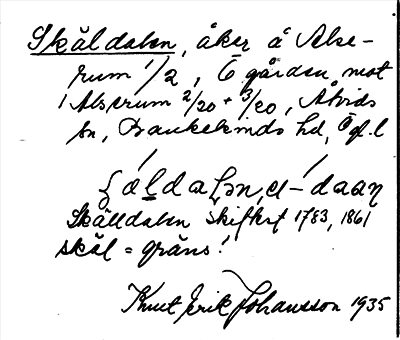 Skäldalen, åker å Alse-
rum 1/2, Ö gården mot
Alserum 2/20 + 3/20, Åtvids
sn, Bankekinds hd, Ög.l
Skälldalen skifteskrt 1783, 1861
skäl = gräns!
Knut Erik Johansson 1935